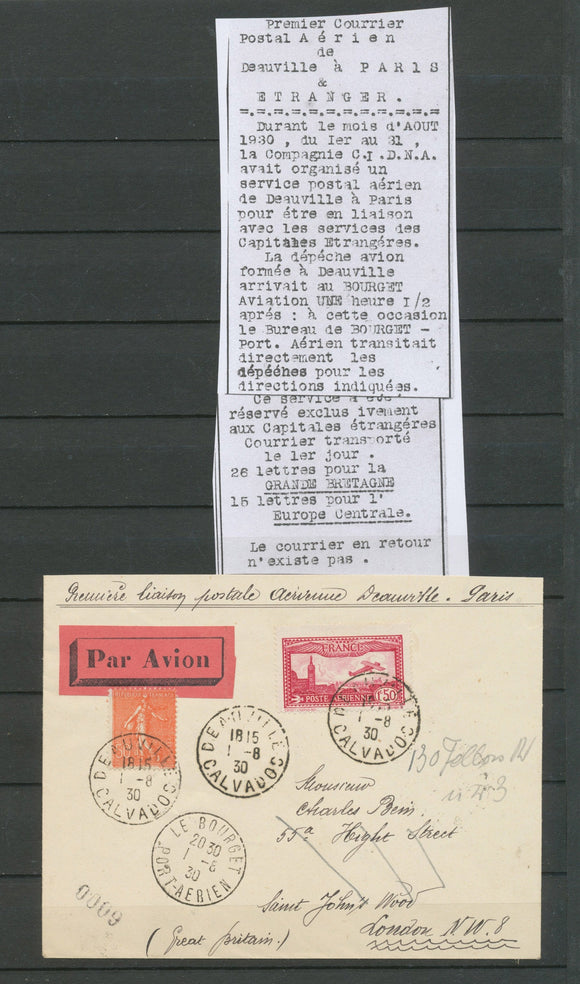 Premier Courrier
Postal Aérien
de
Deauville à PARIS
&
ETRANGER.
=.=.=.=.=.=.=.=.=.=.=.=.=.=
Durant le mois d'AOUT
1930 , du Ier au 31 ,
la Compagnie C.I.D.N.A.
avait organisé un
service postal aérien
de Deauville à Paris
pour étre en liaison
avec les services des
Capitales Etrangéres.
La dépéche avion
formée à Deauville
arrivait au BOURGET
Aviation UNE heure I/2
aprés : à cette occasion
le Bureau de BOURGET -
Port. Aérien transitait
directement les
dépéches pour les
directions indiquées.
Ce service a été
réservé exclus ivement
aux Capitales étrangéres
Courrier transporté
le 1er jour .
26 lettres pour la
GRANDE BRETAGNE
15 lettres pour l'
Europe Centrale.
Le courrier en retour
n'existe pas .
Première liaison postale Aérienne Deauville - Paris
Par Avion
FRANCE
POSTE AERIENNE
1F50
DEAUVILLE
1815
1 -8
30
CALVADOS
DEAUVILLE
1815
1 -8
30
CALVADOS
DEAUVILLE
1 -8
30
CALVADOS
LE BOURGET
2030
1 -8
30
PORT-AERIEN
130
Monsieur
Charles Bein
55a Hight Street
Saint John's Wood
London N.W.8
(Great britain.)
0009